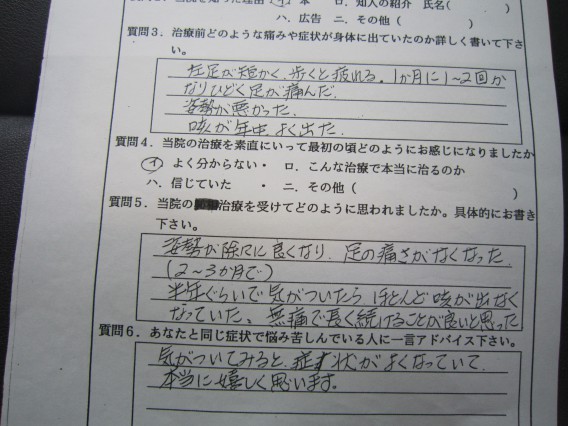 イ 本 ロ．知人の紹介 氏名（ ）
ハ．広告 ニ．その他（ ）
質問３．治療前どのような痛みや症状が身体に出ていたのか詳しく書いて下さ
い。
左足が短かく、歩くと疲れる。1か月に1～2回か
なりひどく足が痛んだ。
姿勢が悪かった。
咳が年中よく出た。
質問４．当院の治療を素直にいって最初の頃どのようにお感じになりましたか
イ よく分からない・ ロ．こんな治療で本当に治るのか
ハ．信じていた ・ ニ．その他（ ）
質問５．当院の治療を受けてどのように思われましたか。具体的にお書き
下さい。
姿勢が除々に良くなり、足の痛さがなくなった
(2～3か月で)
半年ぐらいで気がついたら、ほとんど咳が出なく
なっていた。無痛で長く続けることが良いと思った
質問６．あなたと同じ症状で悩み苦しんでいる人に一言アドバイス下さい。
気がついてみると、症状がよくなっていて、
本当に嬉しく思います。